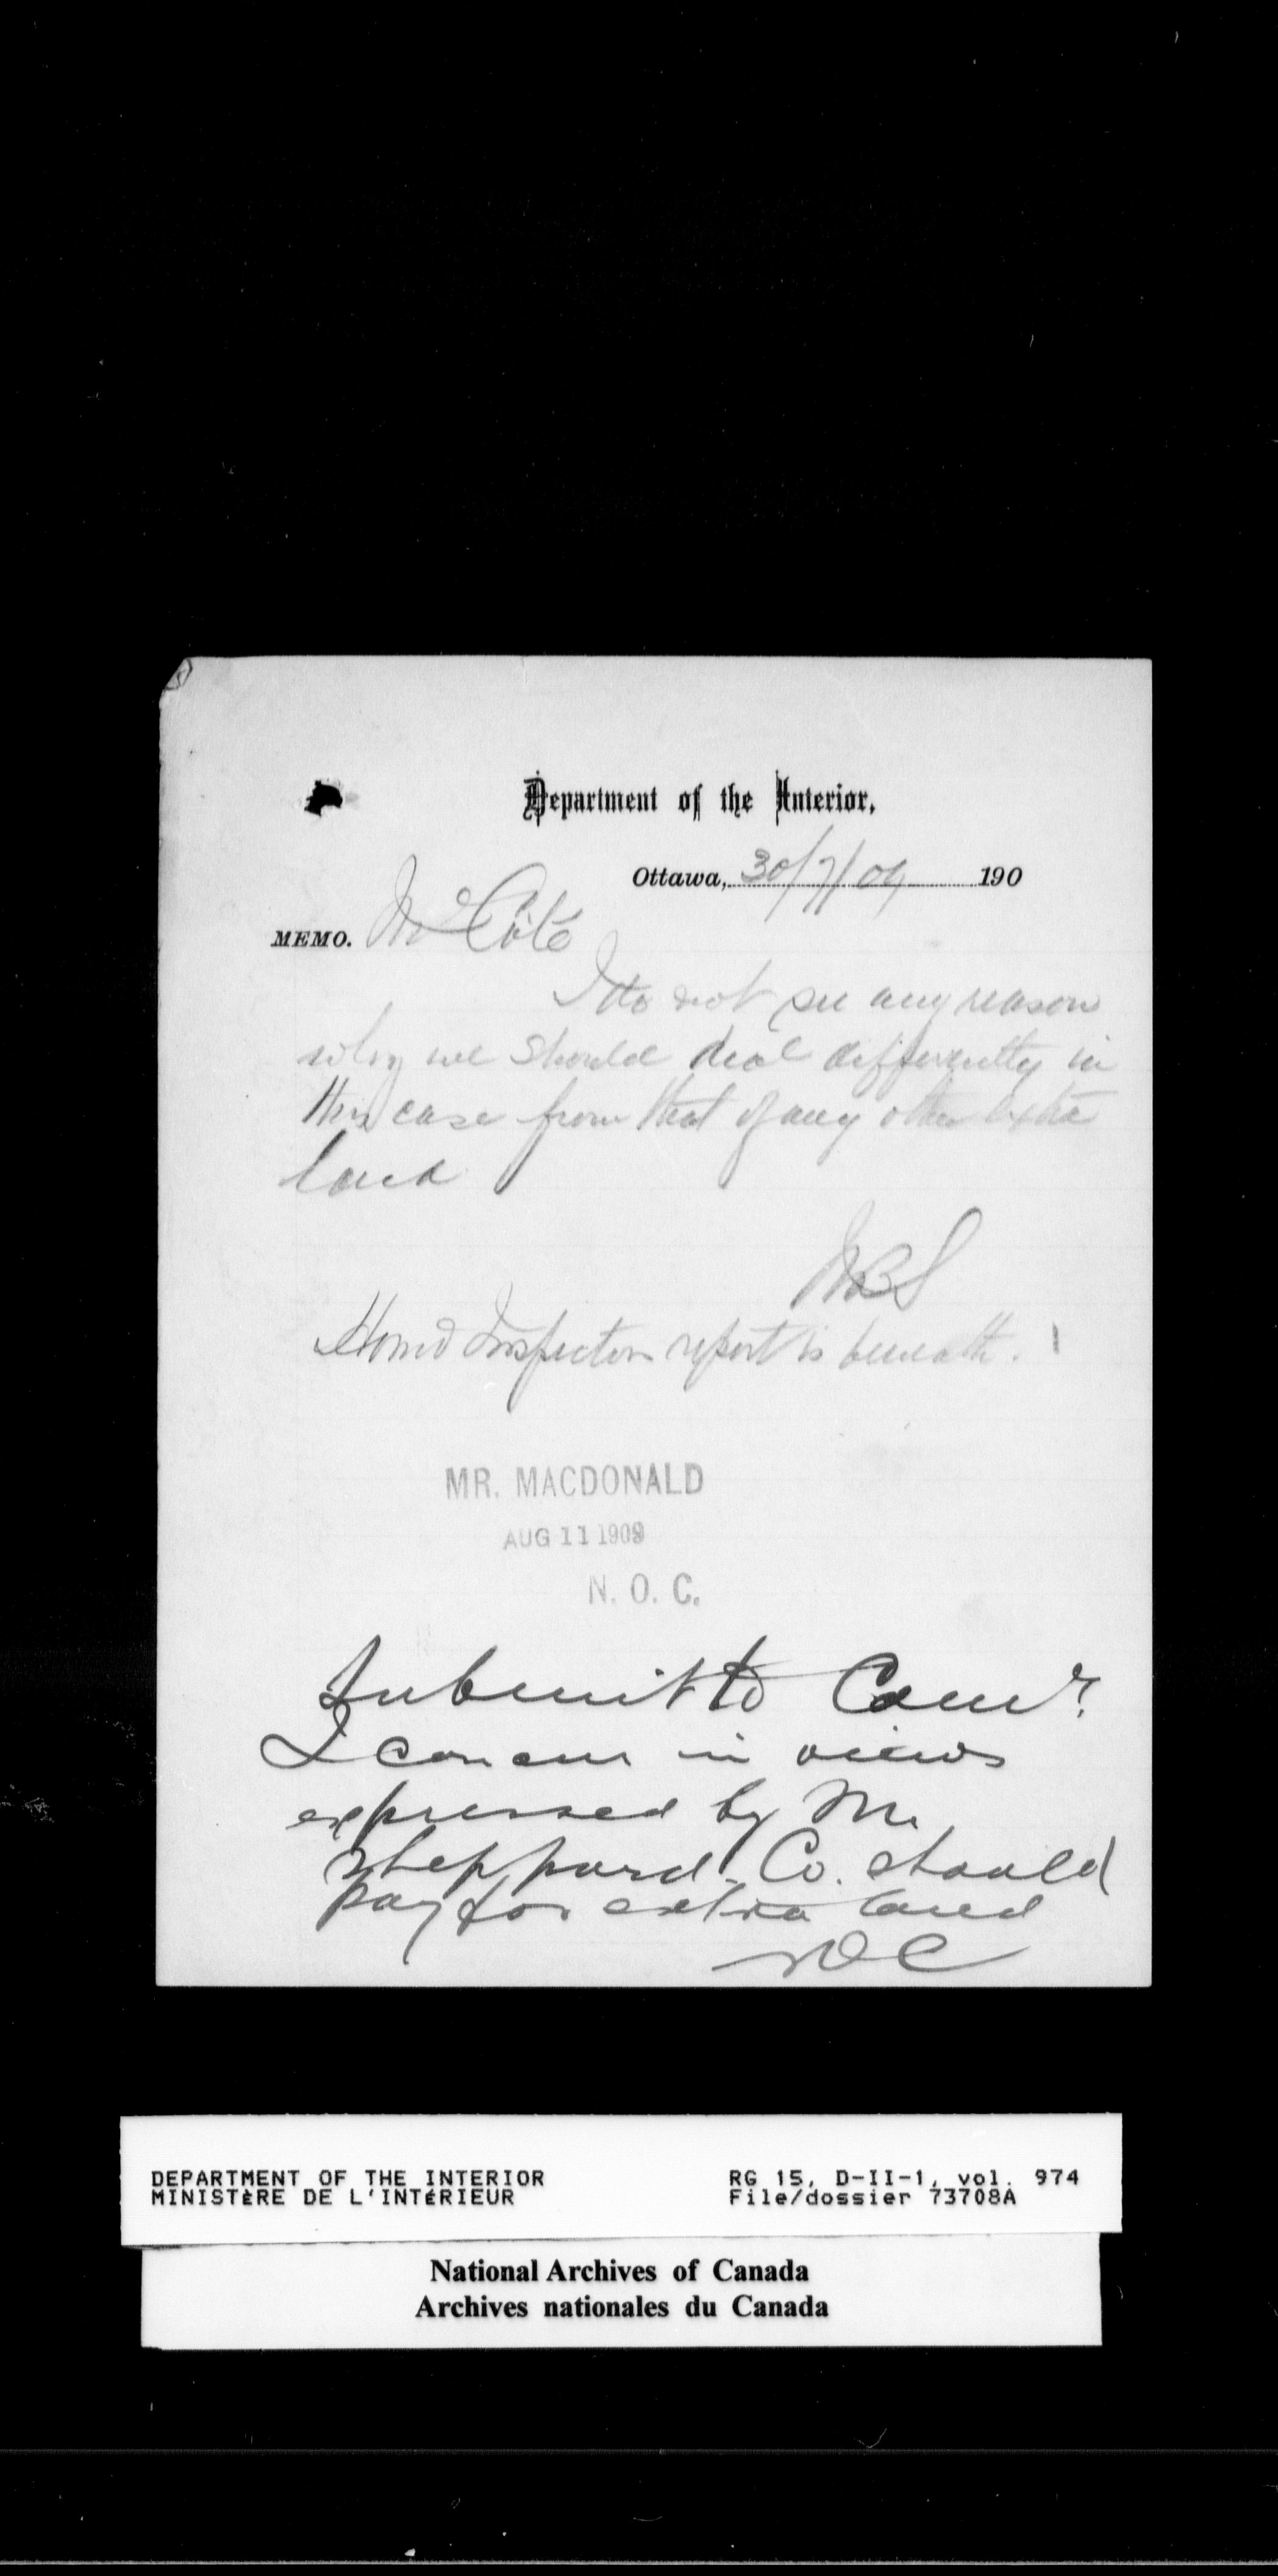 Department of the Interior,
Ottawa, 30/7/09 190
MEMO. Mr Côté
I do not see any reason
why we should deal differently in
this case from that of any other extra
land
Homd Inspector report is beneath.
MR. MACDONALD
AUG 11 1909
N. O. C.
Submit to Comr.
I concur in views
expressed by Mr.
Sheppard. Co. should
pay for extra land
NOC
DEPARTMENT OF THE INTERIOR
MINISTÈRE DE L'INTÉRIEUR
RG 15, D-II-1, vol. 974
File/dossier 73708A
National Archives of Canada
Archives nationales du Canada